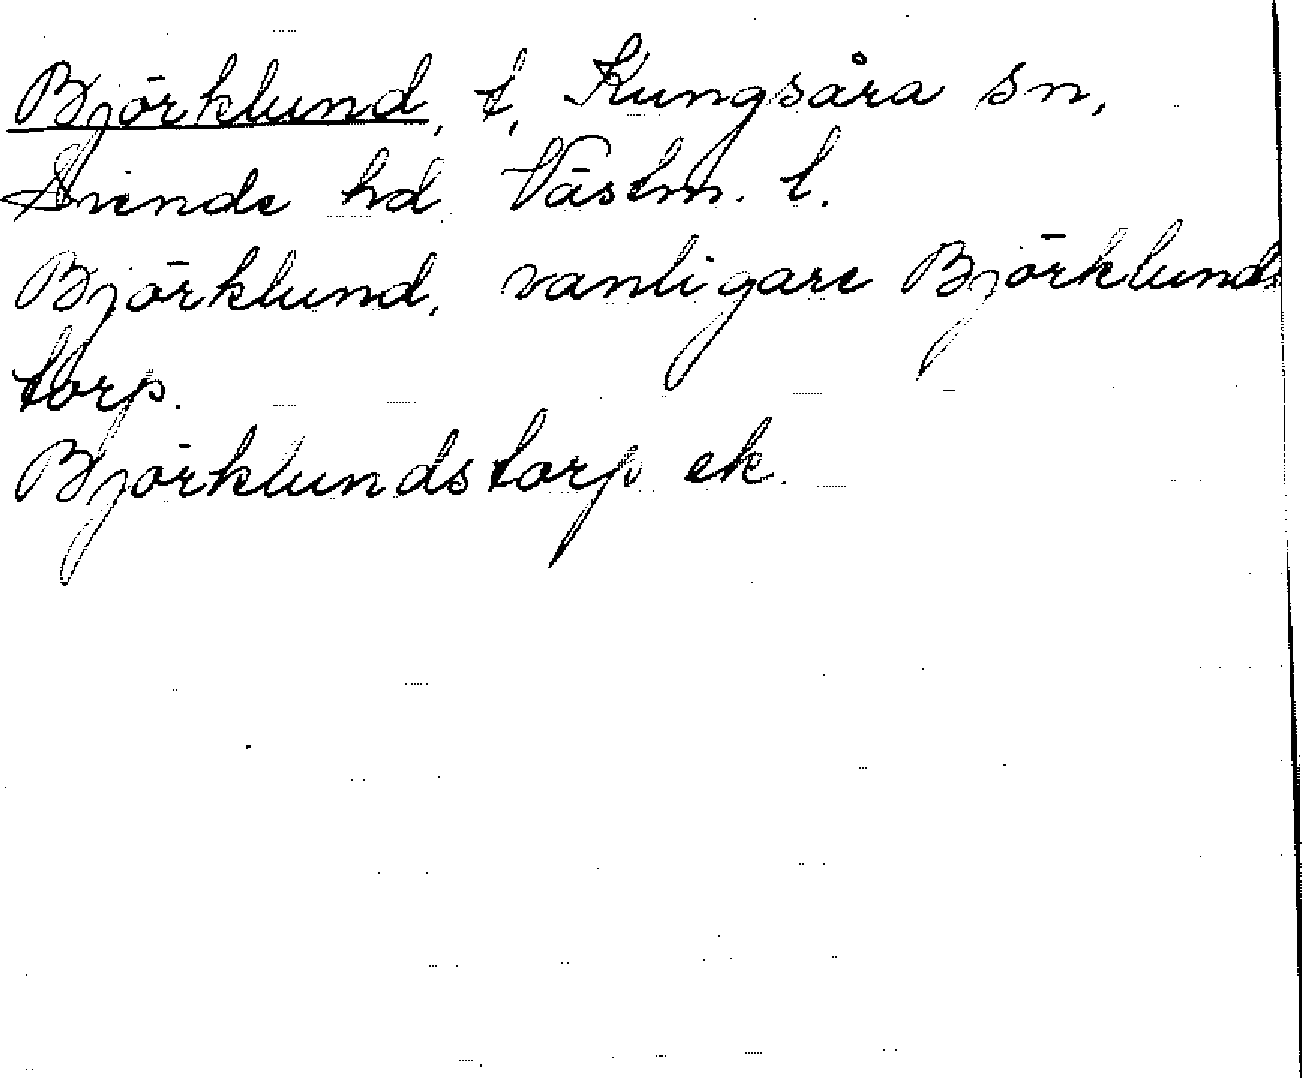 Björklund, t, Kungsåra sn,
Siende hd. Västm. l.
Björklund, vanligare Björklunds
torp.
Björklundstorp ek.